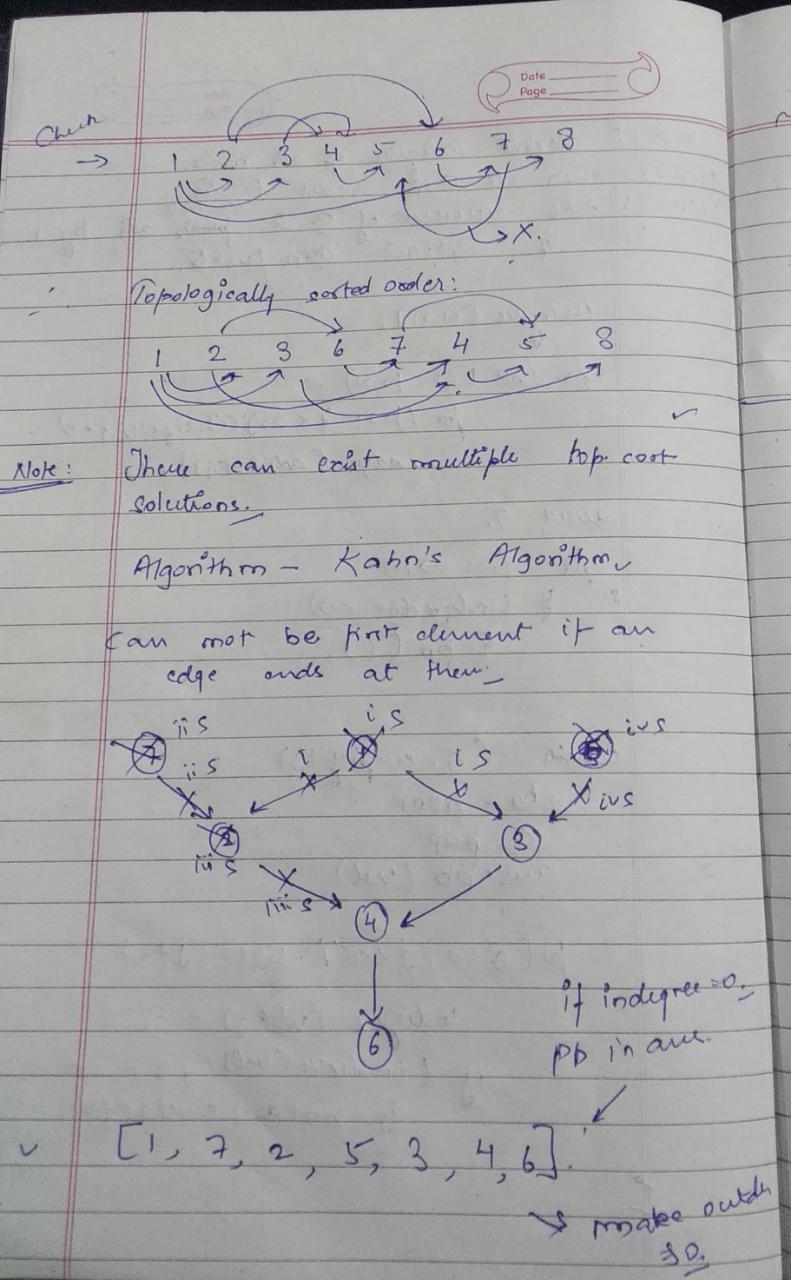 Date
Page
Check
→ 1 2 3 4 5 6 7 8
→ X.
Topologically sorted order:
1 2 3 6 7 4 5 8
Note: There can exist multiple top. sort
solutions.
Algorithm - Kahn's Algorithm
Can not be first element if an
edge ends at them
7 ii S
1 i S
5 iv S
ii S
i
i S
iv S
2
iii S
3
iii S
4
6
if indegree = 0.
pb in ans.
[1, 7, 2, 5, 3, 4, 6].
→ make outde